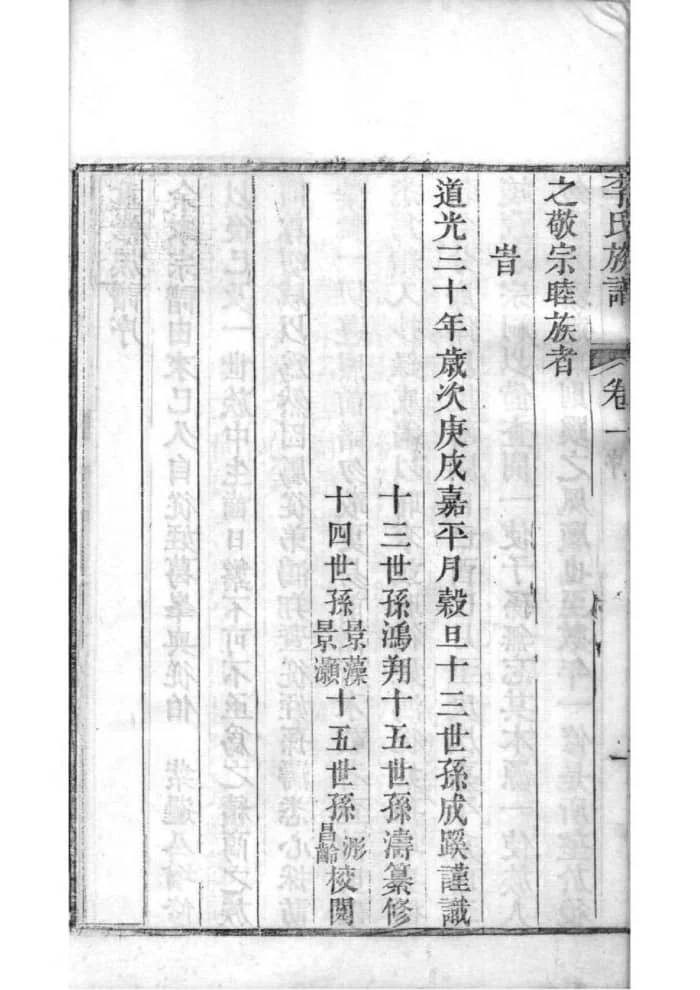 李氏族譜 卷一 序 一
之敬宗睦族者
旹
道光三十年歲次庚戌嘉平月穀旦十三世孫成蹊謹識
十三世孫鴻翔十五世孫濤纂修
十四世孫景藻景灝十五世孫彤昌齡校閱